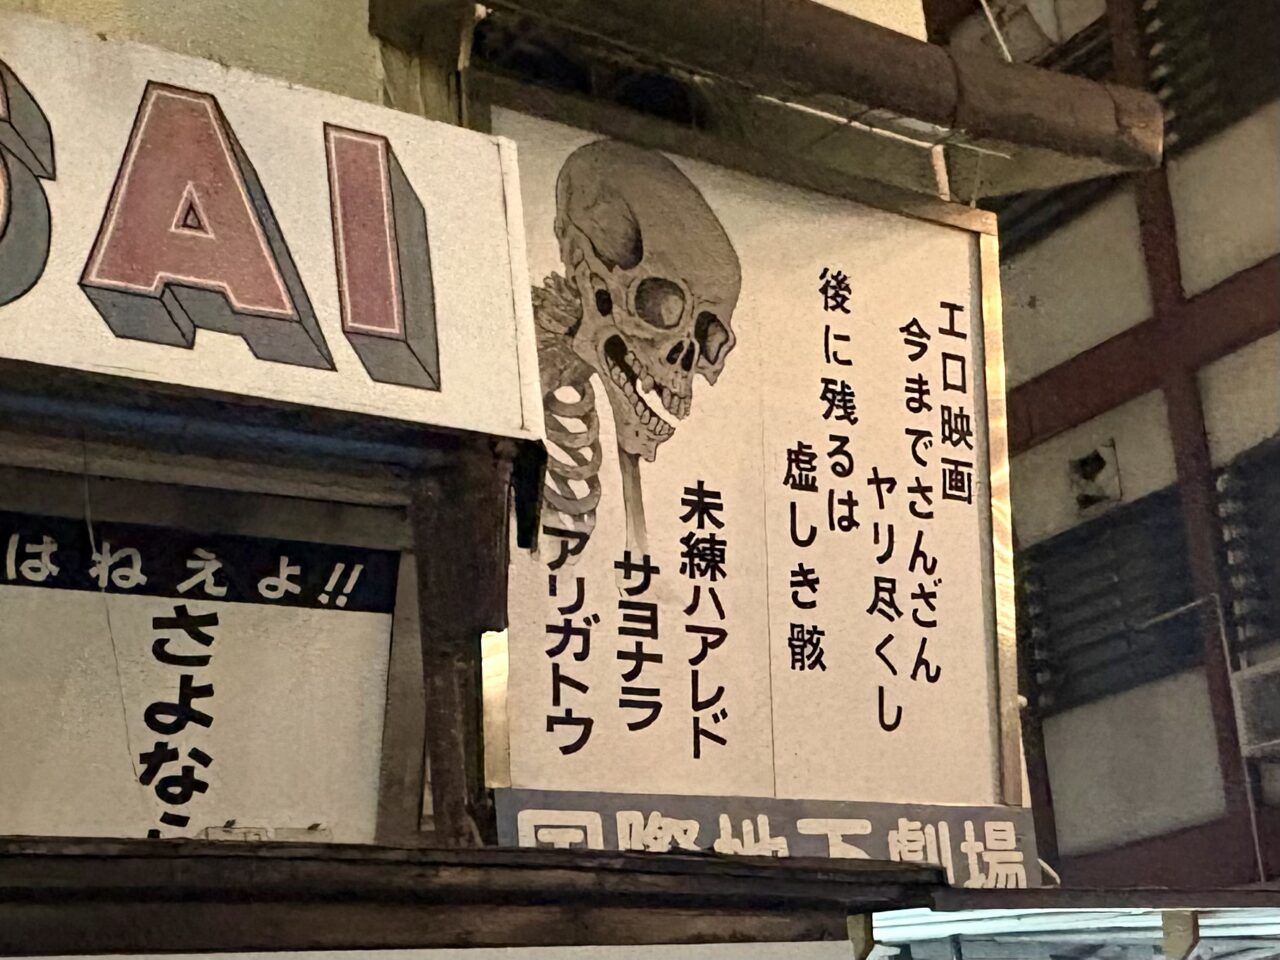 AI
エロ映画
今までさんざん
ヤリ尽くし
後に残るは
虚しき骸
未練ハアレド
サヨナラ
アリガトウ
はねえよ!!
さよな
国際地下劇場